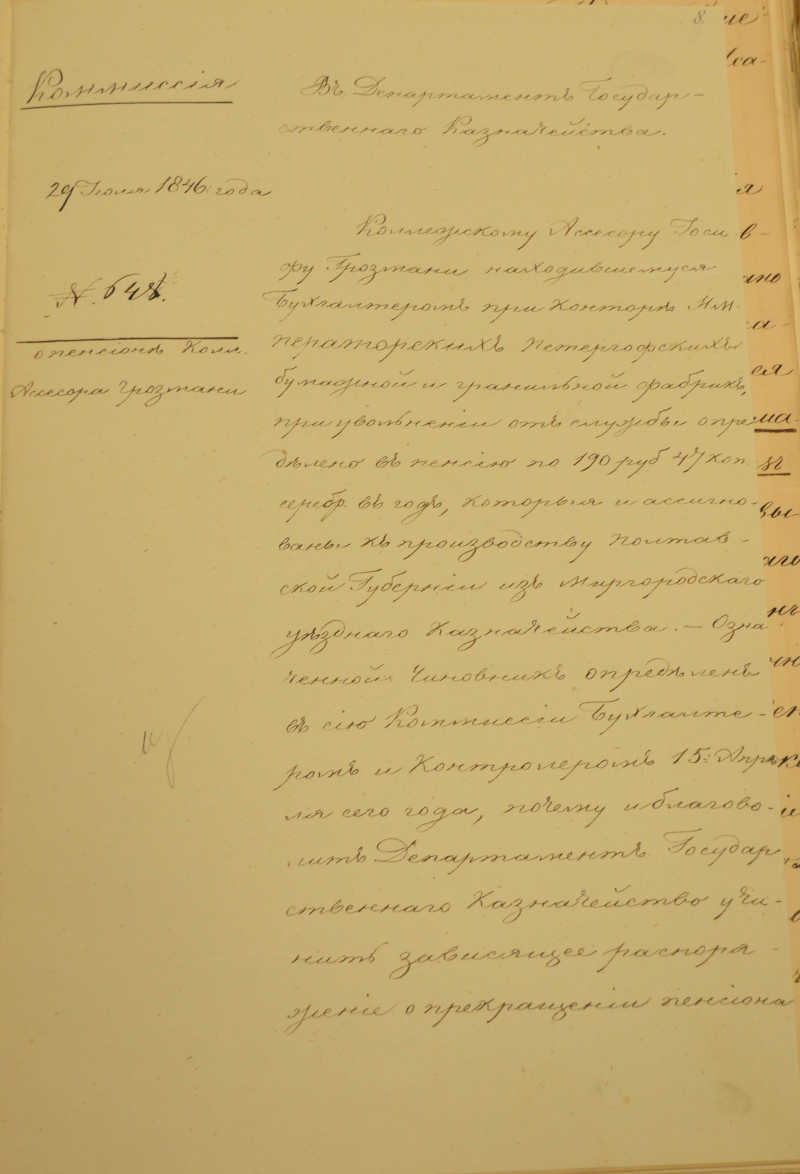 8.
Коммиссія
Въ Департаментъ Государ-
ственнаго Казначейства.
29 Іюля 1846 года
№. 648.
о пенсіонѣ Колл.
Ассесора Грозмани
Коллежскому Ассесору Іоси
фу Грозмани находившемуся
Бухгалтеромъ при Конторѣ Им-
ператорскихъ Петергофскихъ
бумажной и гранильной фабрикъ,
при увольненіи отъ службы опре
дѣлено въ пенсію по 190 руб 47 коп.
серебр. въ годъ, которыя и ассигно-
ваны къ производству Полтав-
ской Губерніи изъ Миргородскаго
уѣзднаго Казначейства. — Озна
ченной Чиновникъ опредѣленъ
въ сію Коммиссію Бухгалте-
ромъ и Контролеромъ 15: Апрѣ
ля сего года, почему и благово-
литъ Департаментъ Государ
ственнаго Казначейство учи-
нить зависящее распоря-
женіе о прекращеніи пенсіона